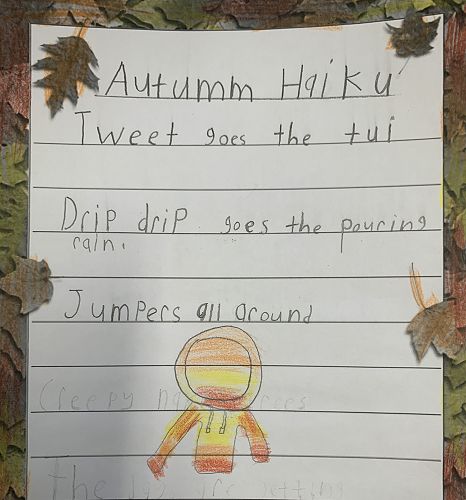 Autumm Haiku
Tweet goes the tui
Drip drip goes the pouring
rain.
Jumpers all around
Creepy
the